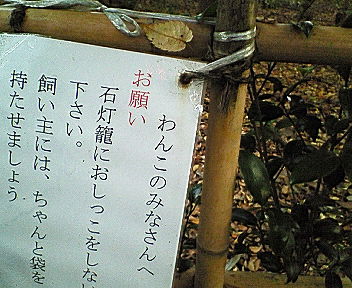 わんこのみなさんへ
お願い
石灯籠におしっこをしない
下さい。
飼い主には、ちゃんと袋を
持たせましょう